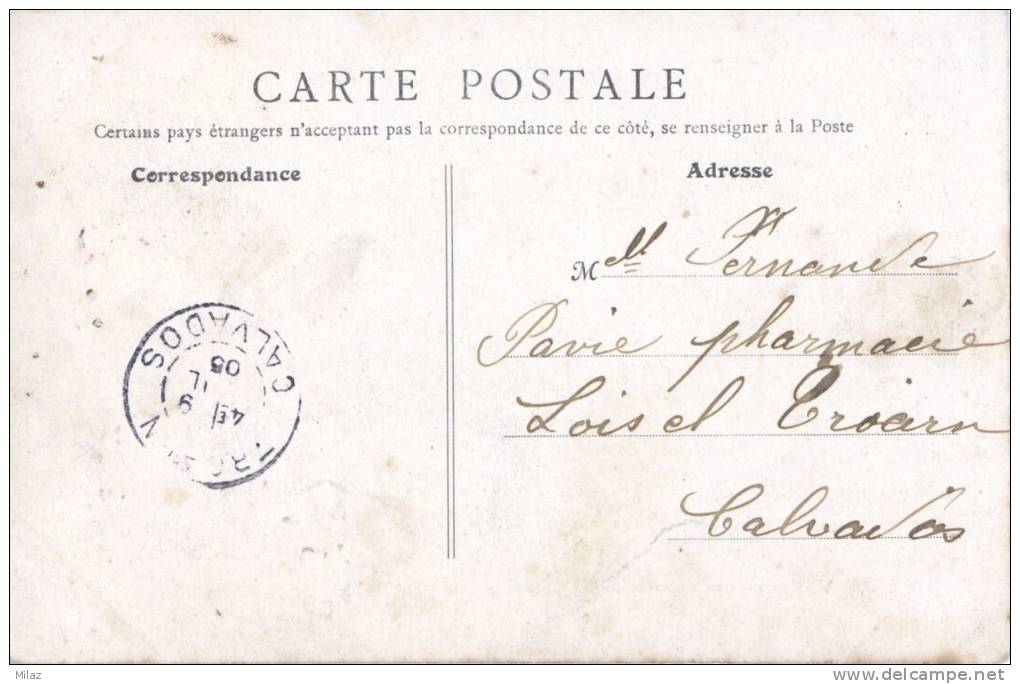 CARTE POSTALE
Certains pays étrangers n'acceptant pas la correspondance de ce côté, se renseigner à la Poste
Correspondance
Adresse
Melle Fernande
Pavie pharmacie
Loisel Troarn
Calvados
TROARN
CALVADOS
05
Milaz
www.delcampe.net